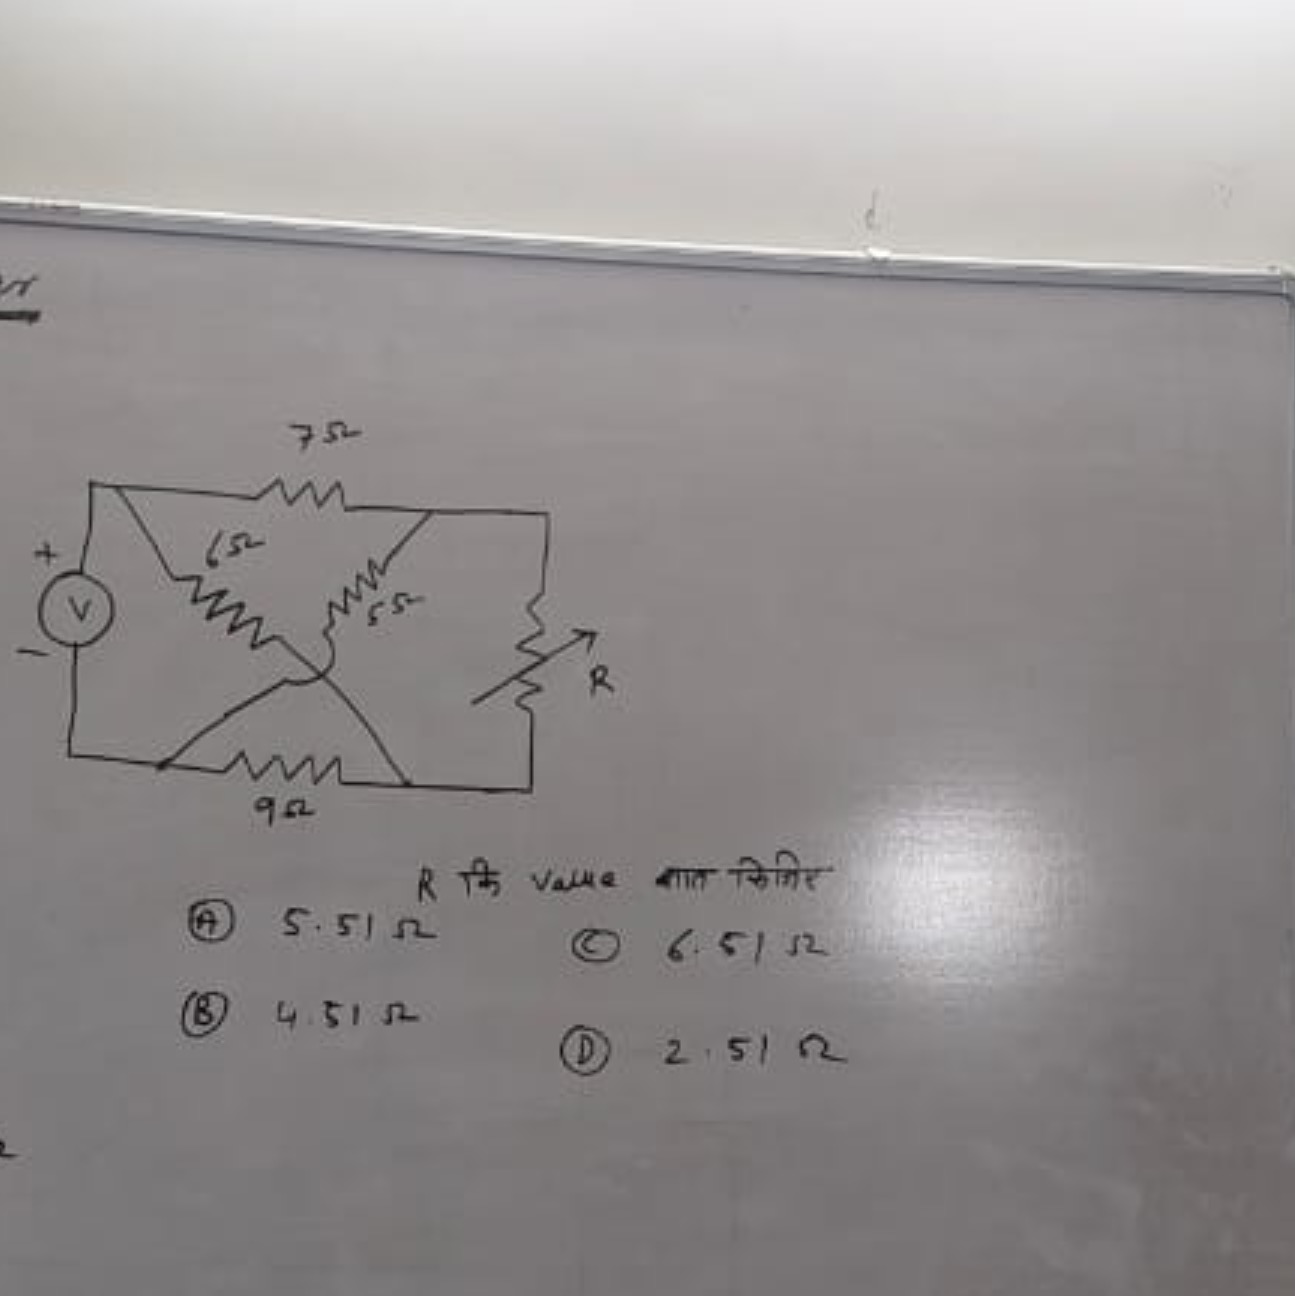 7Ω
6Ω
5Ω
+
V
−
R
9Ω
R कि Value ज्ञात किजिए
Ⓐ 5.51 Ω
Ⓒ 6.51 Ω
Ⓑ 4.51 Ω
Ⓓ 2.51 Ω